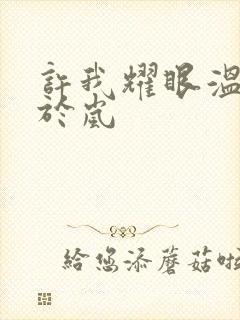 許我耀眼溫
於嵐
給您添蘑菇啦